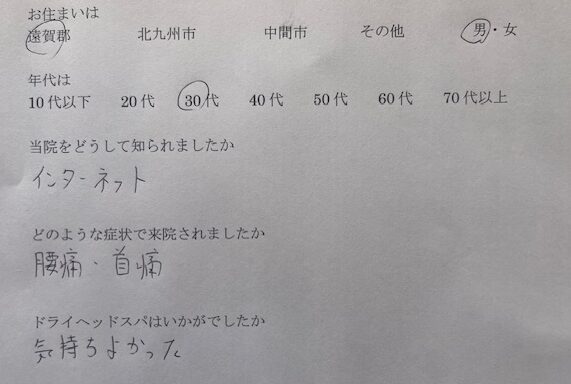 お住まいは
遠賀郡 北九州市 中間市 その他 男・女
年代は
10代以下 20代 30代 40代 50代 60代 70代以上
当院をどうして知られましたか
インターネット
どのような症状で来院されましたか
腰痛・首痛
ドライヘッドスパはいかがでしたか
気持ちよかった